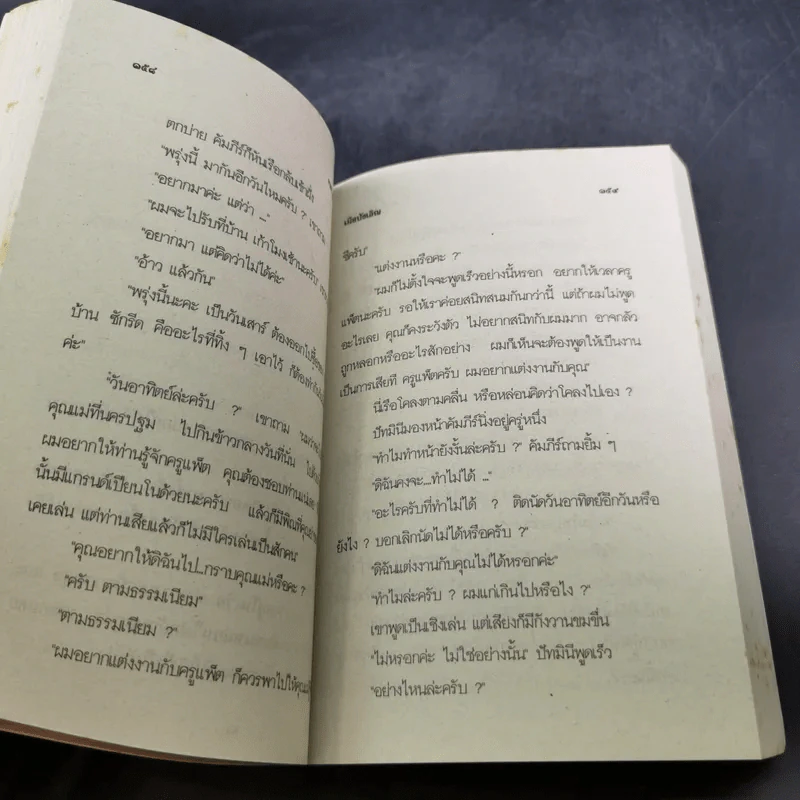 ๑๕๔
ตกบ่าย คัมภีร์ก็หันเรือกลับเข้าฝั่ง
"พรุ่งนี้ มากันอีกวันไหมครับ ? เขาถาม
"อยากมาค่ะ แต่ว่า –"
"ผมจะไปรับที่บ้าน เก้าโมงเช้านะครับ
"อยากมา แต่คิดว่าไม่ได้ค่ะ"
"อ้าว แล้วกัน"
"พรุ่งนี้นะคะ เป็นวันเสาร์ ต้องออกไป
บ้าน ซักรีด คืออะไรที่ทิ้ง ๆ เอาไว้ ก็ต้อง
ค่ะ"
"วันอาทิตย์ล่ะครับ ?" เขาถาม
คุณแม่ที่นครปฐม ไปกินข้าวกลางวันที่นั่น
ผมอยากให้ท่านรู้จักครูแพ็ต คุณต้องชอบท่าน
นั้นมีแกรนด์เปียนโนด้วยนะครับ แล้วก็มี
เคยเล่น แต่ท่านเสียแล้วก็ไม่มีใครเล่นเป็นสักคน
"คุณอยากให้ดิฉันไป...กราบคุณแม่หรือคะ ?
"ครับ ตามธรรมเนียม"
"ตามธรรมเนียม ?"
"ผมอยากแต่งงานกับครูแพ็ต ก็ควรพาไปให้คุณ
๑๕๕
ซีครับ"
"แต่งงานหรือคะ ?"
"ผมก็ไม่ตั้งใจจะพูดเร็วอย่างนี้หรอก อยากให้เวลาครู
แพ็ตนะครับ รอให้เราค่อยสนิทสนมกันกว่านี้ แต่ถ้าผมไม่พูด
อะไรเลย คุณก็คงระวังตัว ไม่อยากสนิทกับผมมาก อาจกลัว
ถูกหลอกหรืออะไรสักอย่าง ผมก็เห็นจะต้องพูดให้เป็นงาน
เป็นการเสียที ครูแพ็ตครับ ผมอยากแต่งงานกับคุณ"
นี่เรือโคลงตามคลื่น หรือหล่อนคิดว่าโคลงไปเอง ?
ปัทมินีมองหน้าคัมภีร์นิ่งอยู่ครู่หนึ่ง
"ทำไมทำหน้ายังงั้นล่ะครับ ?" คัมภีร์ถามยิ้ม ๆ
"ดิฉันคงจะ...ทำไม่ได้ ..."
"อะไรครับที่ทำไม่ได้ ? ติดนัดวันอาทิตย์อีกวันหรือ
ยังไง ? บอกเลิกนัดไม่ได้หรือครับ ?"
"ดิฉันแต่งงานกับคุณไม่ได้หรอกค่ะ"
"ทำไมล่ะครับ ? ผมแก่เกินไปหรือไง ?"
เขาพูดเป็นเชิงเล่น แต่เสียงก็มีกังวานขมขึ้น
"ไม่หรอกค่ะ ไม่ใช่อย่างนั้น" ปัทมินีพูดเร็ว
"อย่างไหนล่ะครับ ?"